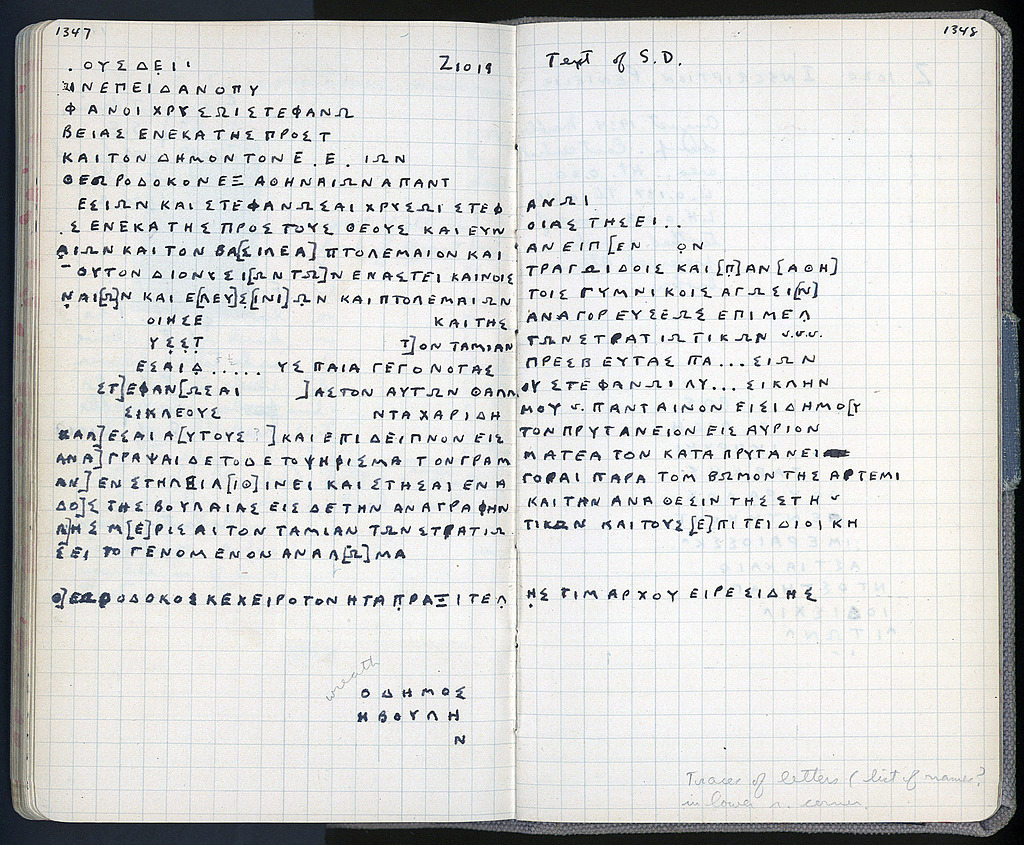 1347
. ΟΥΣΔΕΙΙ
Ζ1019
ΙΝΕΠΕΙΔΑΝΟΠΥ
ΦΑΝΟΙΧΡΥΣΩΙΣΤΕΦΑΝΩ
ΒΕΙΑΣ ΕΝΕΚΑΤΗΣ ΠΡΟΣΤ
ΚΑΙΤΟΝ ΔΗΜΟΝ ΤΟΝ Ε . Ε . ΙΩΝ
ΘΕΩΡΟΔΟΚΟΝΕΞ ΑΘΗΝΑΙΩΝΑΠΑΝΤ
ΕΣΙΩΝ ΚΑΙ ΣΤΕΦΑΝΩΣΑΙ ΧΡΥΣΩΙ ΣΤΕΦ
. Σ ΕΝΕΚΑ ΤΗΣ ΠΡΟΣ ΤΟΥΣ ΘΕΟΥΣ ΚΑΙ ΕΥΝ
ΑΙΩΝ ΚΑΙ ΤΟΝ ΒΑ[ΣΙΛΕΑ] ΠΤΟΛΕΜΑΙΟΝ ΚΑΙ
ΟΥΤΟΝ ΔΙΟΝΥΣΙ[ΩΝΤΩ]Ν ΕΝΑΣΤΕΙ ΚΑΙΝΟΙΣ
ΝΑΙ[Ω]Ν ΚΑΙ Ε[ΛΕΥ]Σ[ΙΝΙ]ΩΝ ΚΑΙΠΤΟΛΕΜΑΙΩΝ
ΟΙΗΣΕ ΚΑΙ ΤΗΣ
ΥΣΣΤ Τ]ΟΝ ΤΑΜΙΑΝ
ΕΣΑΙΔ ..... ΥΣ ΠΑΙΑ ΓΕΓΟΝΟΤΑΣ
ΣΤ]ΕΦΑΝ[ΩΣΑΙ ]ΑΣΤΟΝ ΑΥΤΩΝ ΘΑΛΛ
ΣΙΚΛΕΟΥΣ ΝΤΑ ΧΑΡΙΔΗ
ΚΑΛ]ΕΣΑΙ Α[ΥΤΟΥΣ ? ]ΚΑΙ ΕΠΙ ΔΕΙΠΝΟΝ ΕΙΣ
ΑΝΑ]ΓΡΑΨΑΙ ΔΕ ΤΟΔΕ ΤΟ ΨΗΦΙΣΜΑ ΤΟΝ ΓΡΑΜ
ΑΝ] ΕΝ ΣΤΗΛΕΙ Λ[ΙΘ]ΙΝΕΙ ΚΑΙ ΣΤΗΣΑΙ ΕΝ Α
ΔΟ]Σ ΤΗΣ ΒΟΥΛΑΙΑΣ ΕΙΣ ΔΕ ΤΗΝ ΑΝΑΓΡΑΦΗΝ
ΛΗΣ Μ[Ε]ΡΙΣΑΙ ΤΟΝ ΤΑΜΙΑΝ ΤΩΝ ΣΤΡΑΤΙΩ
ΣΕΙ ΤΟ ΓΕΝΟΜΕΝΟΝ ΑΝΑΛ[Ω]ΜΑ
Θ]ΕΩΡΟΔΟΚΟΣ ΚΕΧΕΙΡΟΤΟΝΗΤΑ ΠΡΑΞΙΤΕΛ
wreath
Ο ΔΗΜΟΣ
Η ΒΟΥΛΗ
Ν
1348
Text of S.D.
ΑΝΩΙ
ΟΙΑΣ ΤΗΣΕΙ . .
ΑΝΕΙΠ[ΕΝ ΟΝ
ΤΡΑΓΩΙΔΟΙΣ ΚΑΙ [Π]ΑΝ[ΑΘΗ]
ΤΟΙΣ ΓΥΜΝΙΚΟΙΣ ΑΓΩΣΙ[Ν]
ΑΝΑΓΟΡΕΥΣΕΩΣ ΕΠΙΜΕΛ
ΤΩΝ ΣΤΡΑΤΙΩΤΙΚΩΝ v.v.v.
ΠΡΕΣΒΕΥΤΑΣ ΠΑ ... ΣΙΩΝ
ΟΥ ΣΤΕΦΑΝΩΙ ΛΥ ... ΣΙΚΛΗΝ
ΜΟΥ v. ΠΑΝΤΑΙΝΟΝ ΕΙΣΙΔΗΜΟ[Υ
ΤΟΝ ΠΡΥΤΑΝΕΙΟΝ ΕΙΣ ΑΥΡΙΟΝ
ΜΑΤΕΑ ΤΟΝ ΚΑΤΑ ΠΡΥΤΑΝΕΙ
ΓΟΡΑΙ ΠΑΡΑ ΤΟΜ ΒΩΜΟΝ ΤΗΣ ΑΡΤΕΜΙ
ΚΑΙ ΤΗΝ ΑΝΑΘΕΣΙΝ ΤΗΣ ΣΤΗ v
ΤΙΚΩΝ ΚΑΙ ΤΟΥΣ [Ε]ΠΙ ΤΕΙ ΔΙΟΙΚΗ
ΗΣ ΤΙΜΑΡΧΟΥ ΕΙΡΕΣΙΔΗΣ
Traces of letters (list of names?
in lower r. corner.